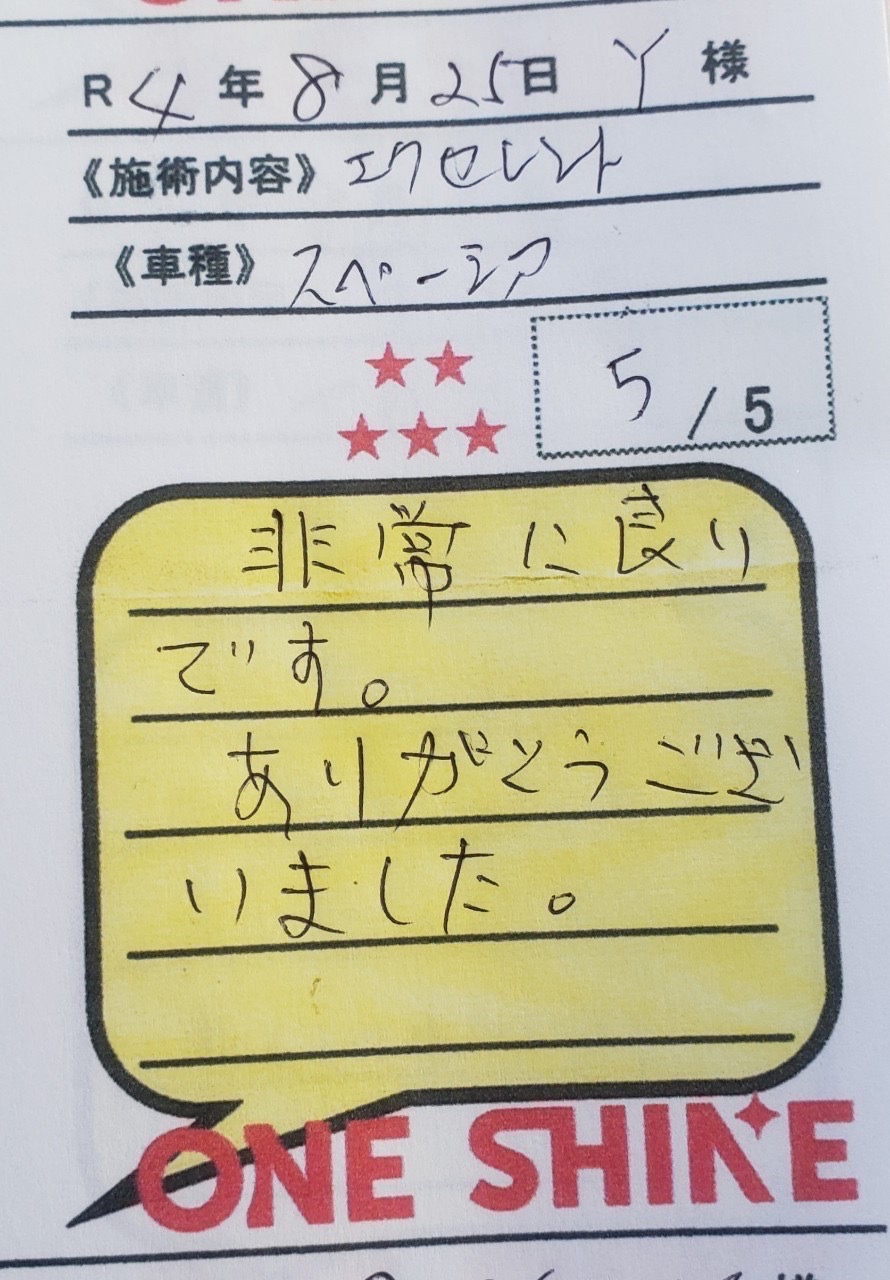 R4年8月25日 Y様
《施術内容》エクセレント
《車種》スペーシア
5/5
非常に良い
です。
ありがとうござ
いました。
ONE SHINE